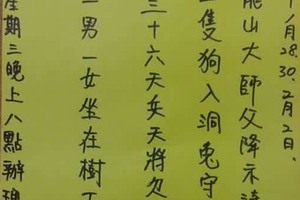 1月28.30.2月2日、
龍山大師父降示詩
一隻狗入洞兔守
三十六天兵天將欠
一男一女坐在樹下
星期三晚上八點辦理